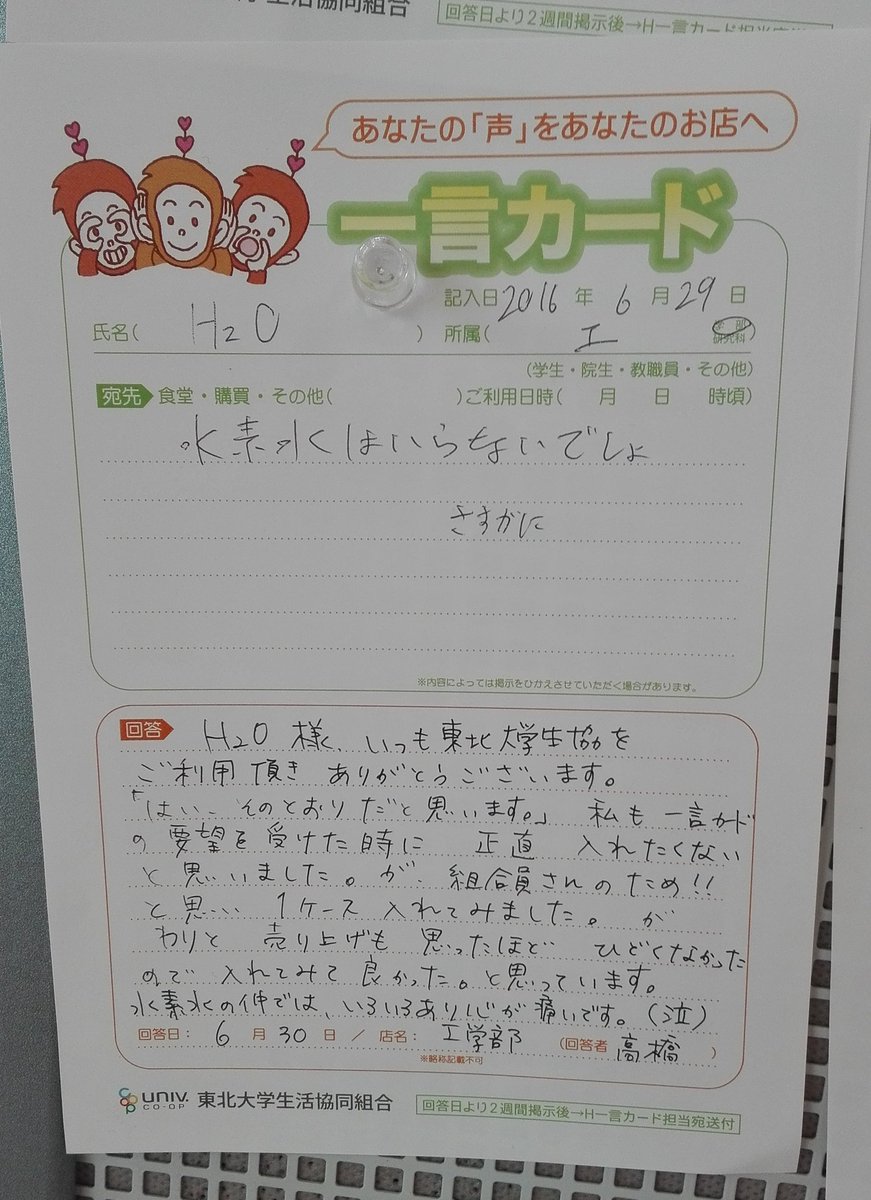 生活協同組合
回答日より2週間掲示後→H一言カード担当宛送
あなたの「声」をあなたのお店へ
一言カード
記入日2016年6月29日
氏名( H2O ) 所属( 工 学部 研究科 )
(学生・院生・教職員・その他)
宛先 食堂・購買・その他( )ご利用日時( 月 日 時頃)
水素水はいらないでしょ
さすがに
※内容によっては掲示をひかえさせていただく場合があります。
回答 H2O 様、いつも東北大学生協を
ご利用頂き ありがとうございます。
「はい、そのとおりだと思います。」 私も一言カード
の要望を受けた時に 正直 入れたくない
と思いました。が、組合員さんのため!!
と思い… 1ケース 入れてみました。が
わりと 売り上げも 思ったほど ひどくなかった
ので 入れてみて 良かった。と思っています。
水素水の件では、いろいろあり心が痛いです。(泣)
回答日: 6月30日 / 店名: 工学部 (回答者 高橋 )
※略称記載不可
UNIV. CO-OP 東北大学生活協同組合 回答日より2週間掲示後→H一言カード担当宛送付